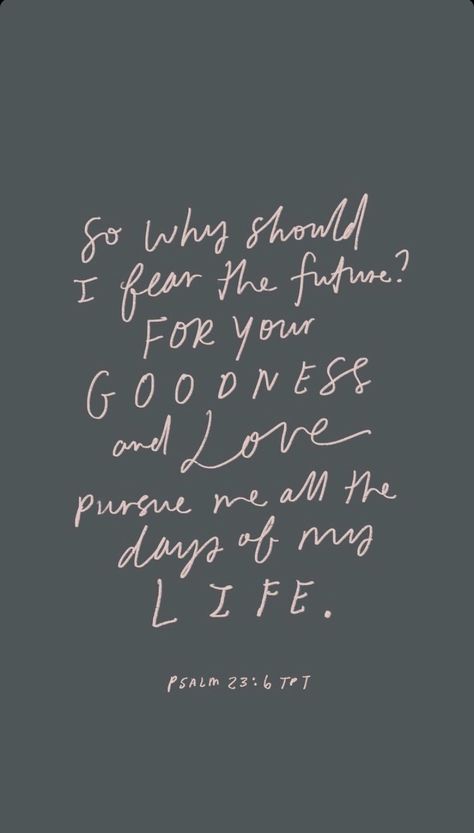 So why should
I fear the future?
FOR your
GOODNESS
and Love
pursue me all the
days of my
LIFE.
PSALM 23:6 TPT